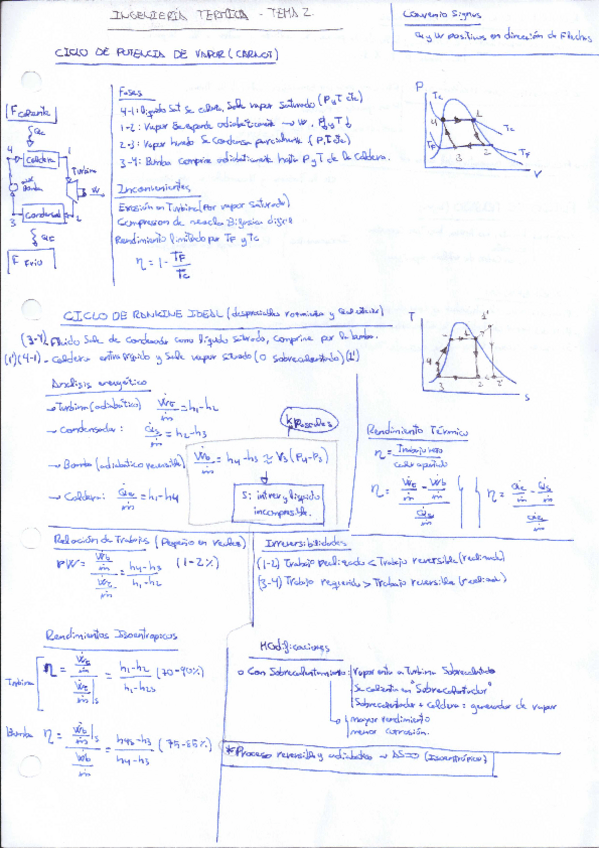 INGENIERÍA TÉRMICA - TEMA 2
Convenio Signos
Q y W positivos en dirección de flechas
CICLO DE POTENCIA DE VAPOR (CARNOT)
Fases
4-1: líquido sat se calienta, sale vapor saturado (P y T cte)
1-2: Vapor se expande adiabáticamente → W, P↓ y T↓
2-3: Vapor húmedo se condensa parcialmente (P, T cte)
3-4: Bomba comprime adiabáticamente hasta P y T de la caldera.
Inconvenientes
Erosión en Turbina (por vapor saturado)
Compresión de mezcla Bifásica difícil
Rendimiento limitado por TF y TC
η = 1 - TF/TC
F caliente
Qe
4
Caldera
1
Turbina
W
bomba
3
Condensad
2
Qs
F Frío
P
Tc
4
1
Tc
TF
3
2
TF
V
CICLO DE RANKINE IDEAL (despreciables rozamientos y
(3-4)- Fluido sale de condensador como líquido saturado, comprime por la bomba.
(1')(4-1)- Caldera entra líquido y sale vapor saturado (o sobrecalentado)(1')
T
1'
4
1
3
2
2'
s
Análisis energético
→ Turbina (adiabática) Ẇt/ṁ = h1-h2
→ Condensador: Q̇s/ṁ = h2-h3
→ Bomba (adiabática reversible) Ẇb/ṁ = h4-h3 ≈ V3(P4-P3)
kPascales
Si: int rev y líquido
incompresible.
→ Caldera: Q̇e/ṁ = h1-h4
Rendimiento Térmico
η = Trabajo neto / calor aportado
η = (Ẇt/ṁ - Ẇb/ṁ) / (Q̇e/ṁ)
η = (Q̇e/ṁ - Q̇s/ṁ) / (Q̇e/ṁ)
Relación de Trabajos (Pequeño en reales)
rW = (Ẇb/ṁ) / (Ẇt/ṁ) = (h4-h3)/(h1-h2) (1-2%)
Irreversibilidades
(1-2) Trabajo realizado < Trabajo reversible (realizado)
(3-4) Trabajo requerido > Trabajo reversible (realizado)
Rendimientos Isoentrópicos
Turbina η = (Ẇt/ṁ) / (Ẇt/ṁ)s = (h1-h2)/(h1-h2s) (70-90%)
Bomba η = (Ẇb/ṁ)s / (Ẇb/ṁ) = (h4s-h3)/(h4-h3) (75-85%)
Modificaciones
o Con Sobrecalentamiento: Vapor entra a Turbina Sobrecalentado
Se calienta en "Sobrecalentador"
Sobrecalentador + Caldera = generador de vapor
→ mayor rendimiento
menor corrosión.
* Proceso reversible y adiabático → ΔS=0 (Isoentrópico)